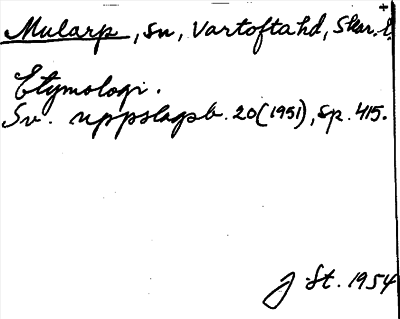 Mularp, sn, Vartofta hd, Skar. l.
Etymologi.
Sv. uppslagsb. 20 (1951), sp. 415.
J. St. 1954